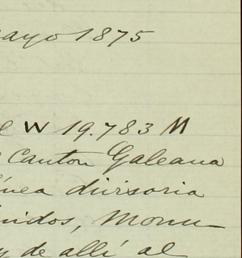 mayo 1875
W 19.783 M
Canton Galeana
línea divisoria
nidos, Monu-
y de allí al